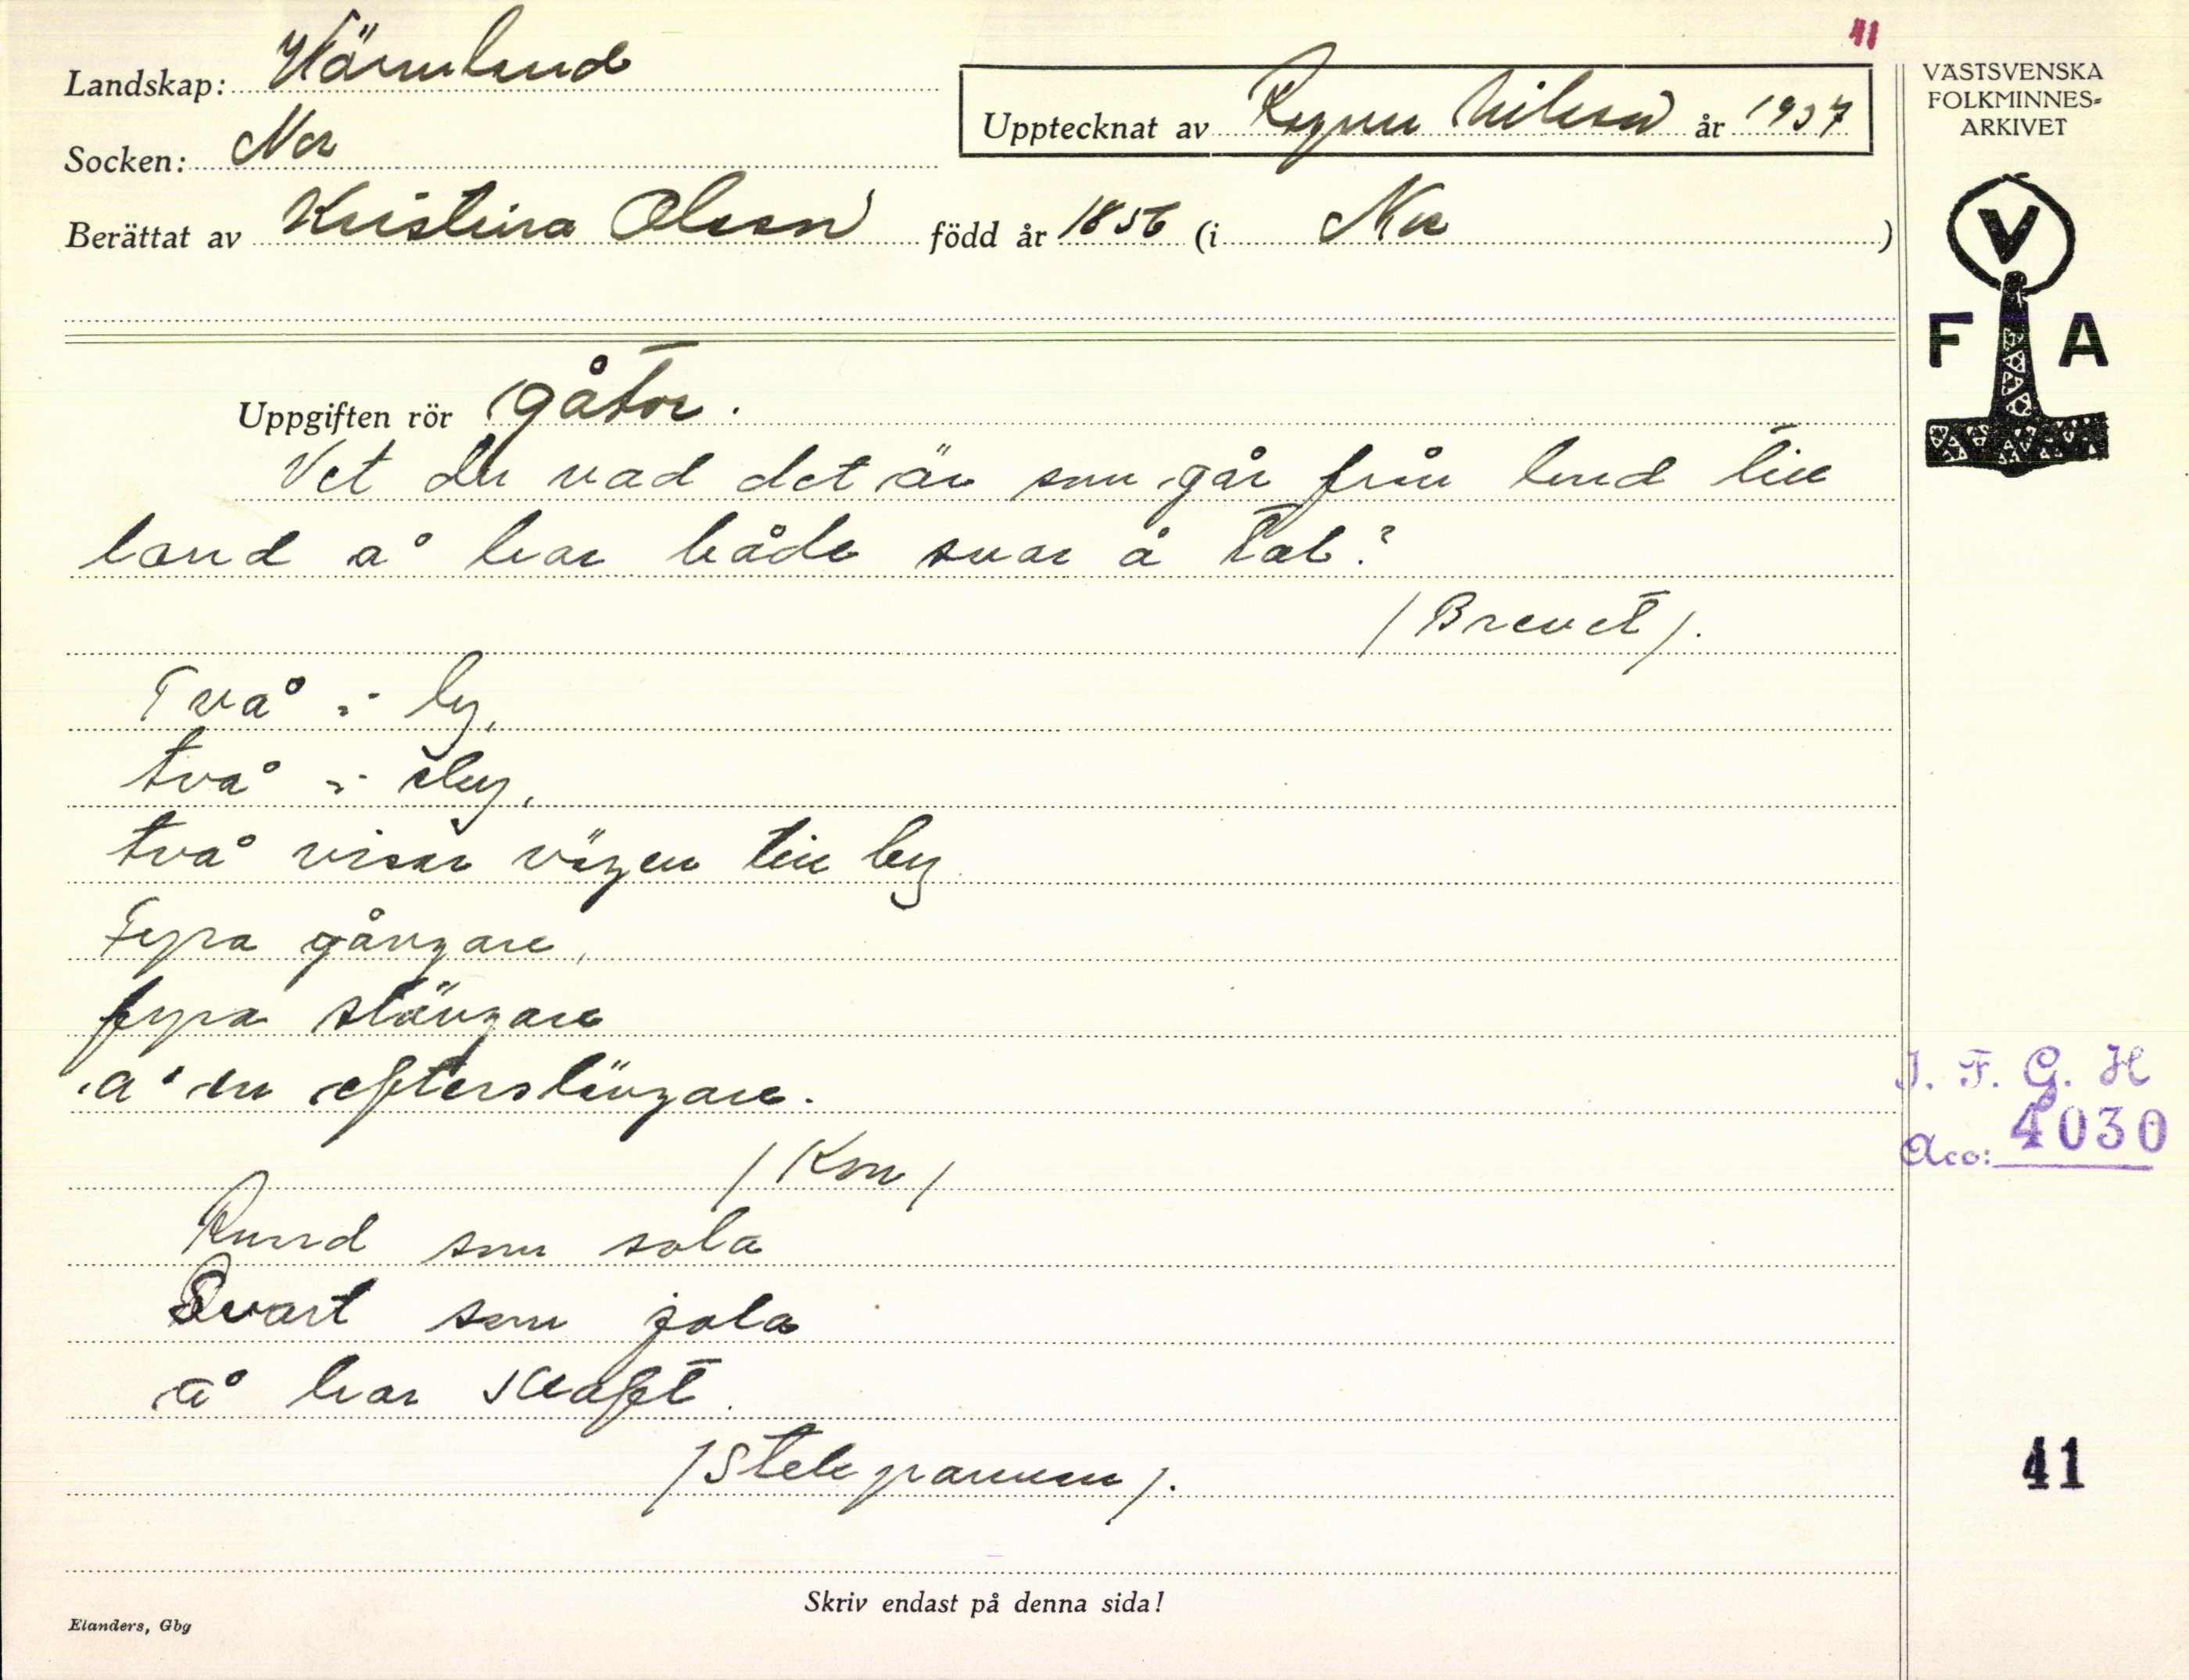 41
Landskap: Värmland
Upptecknat av Ragnar Nilsson år 1937
Socken: Nor
Berättat av Kristina Olsson född år 1856 (i Nor)
VÄSTSVENSKA
FOLKMINNES=
ARKIVET
V
F A
Uppgiften rör gåtor.
Vet du vad det är som går från land till
land å har både svar å tal?
/Brevet/.
Två i by,
två i sky,
två visar vägen till by
Fyra gångare,
fyra slängare
å en efterslängare.
/Kon/
Rund som sola
Svart som jola
å har skaft.
/Stekpannan/.
I. F. G. H
Acc: 4030
41
Skriv endast på denna sida!
Elanders, Gbg